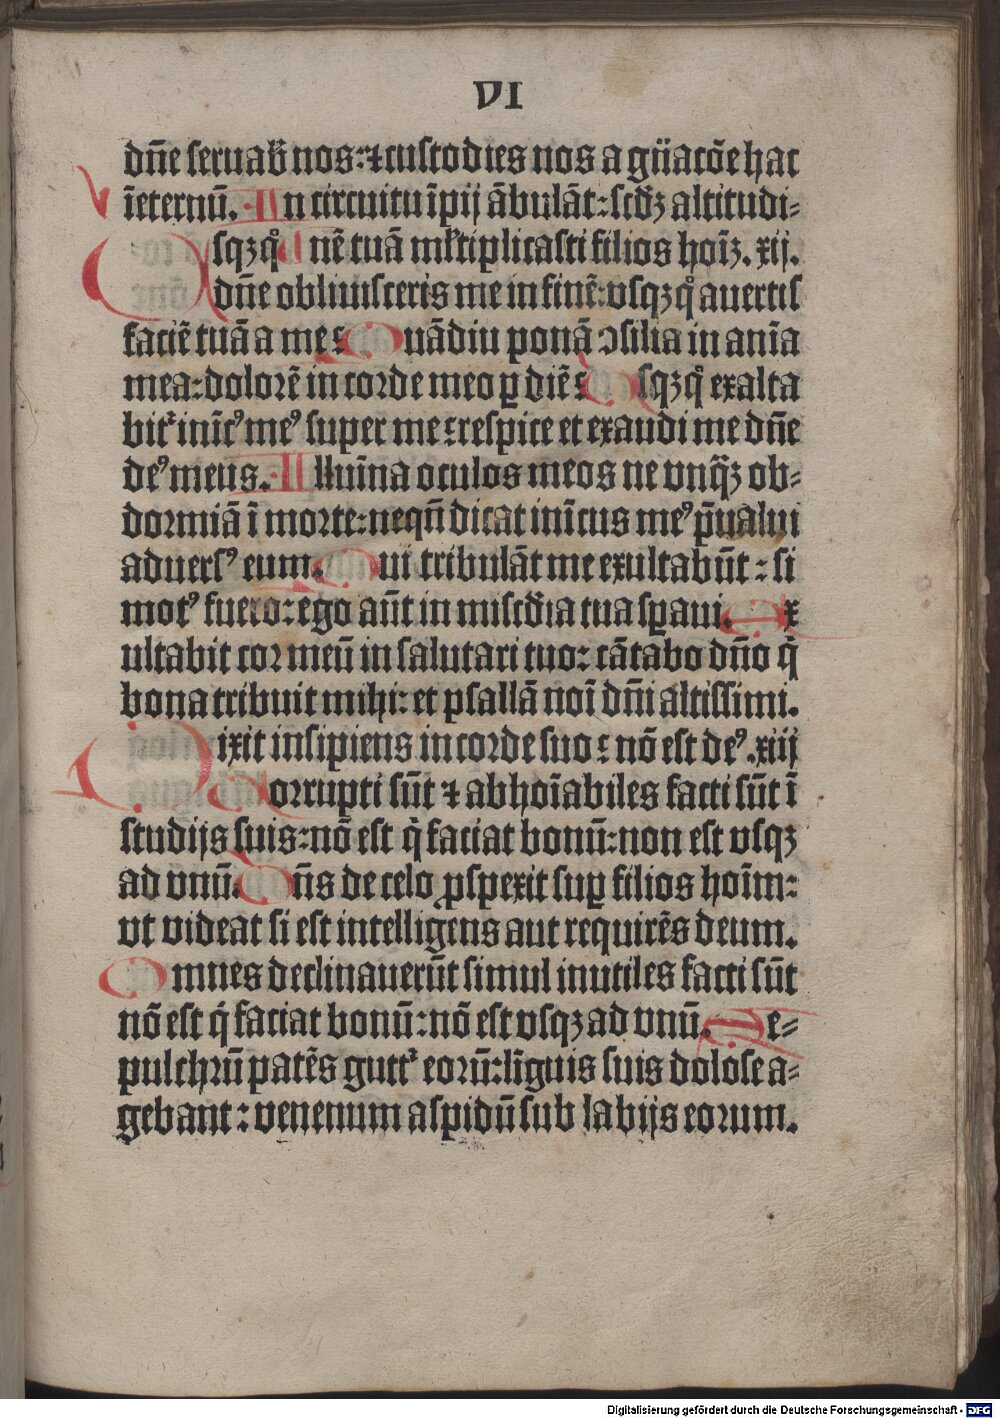 VI
dn̄e seruab̄ nos:⁊ custodies nos a gn̄iatōe hac
īeternū. In circuitu īpij ābulāt: scd̄ꝫ altitudi⸗
nē tuā ml̄tiplicasti filios hoīꝫ. xij.
Vsqꝫqͦ dn̄e obliuisceris me in finē:vsqꝫqͦ auertis
faciē tuā a me: Quādiu ponā ↄsilia in anīa
mea:dolorē in corde meo ꝑ diē: Vsqꝫqͦ exalta
bit᷑ inīcꝰ meꝰ super me:respice et exaudi me dn̄e
deꝰ meus. Illuīna oculos meos ne vnq̄ꝫ ob⸗
dormiā ī morte:neqn̄ dicat inīcus meꝰ p̄ualui
aduersꝰ eum. Qui tribulāt me exultabūt: si
motꝰ fuero:ego aūt in misc̄dia tua sꝑaui. Ex
ultabit cor meū in salutari tuo: cātabo dn̄o q̇
bona tribuit mihi: et psallā noī dn̄i altissimi.
Dixit insipiens in corde suo: nō est deꝰ. xiij
Corrupti sūt ⁊ abhoīabiles facti sūt ī
studijs suis:nō est q̇ faciat bonū:non est vsqꝫ
ad vnū. Dn̄s de celo ꝓspexit suꝑ filios hoīm:
vt videat si est intelligens aut requirēs deum.
Omnes declinauerūt simul inutiles facti sūt
nō est q̇ faciat bonū:nō est vsqꝫ ad vnū. Se⸗
pulchrū patēs gutt᷑ eorū:līguis suis dolose a⸗
gebant: venenum aspidū sub labijs eorum.
Digitalisierung gefördert durch die Deutsche Forschungsgemeinschaft - DFG